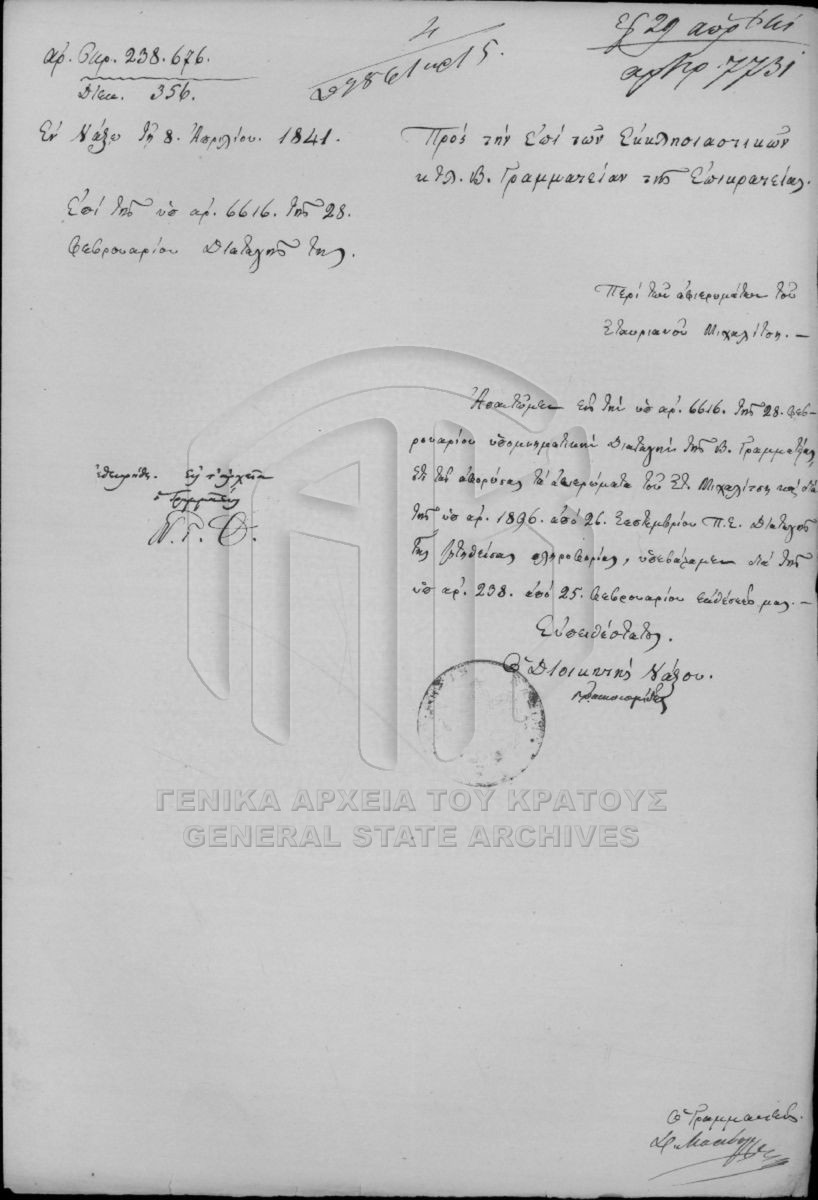 ἀρ. Πρ. 238. 676.
Διεκ. 356.
4
29 ἀπριλ
7731
Ἐν Νάξῳ τῇ 8. Ἀπριλίου. 1841.
Πρὸς τὴν ἐπὶ τῶν Ἐκκλησιαστικῶν
κτλ. Β. Γραμματείαν τῆς Ἐπικρατείας.
Ἐπὶ τῆς ὑπ ἀρ. 6616. τῆς 28.
Φεβρουαρίου Διαταγῆς της.
Περὶ τῶν ἀφιερωμάτων τοῦ
Σταυριανοῦ Μιχαλίτση. —
Ἀπαντῶμεν εἰς τὴν ὑπ ἀρ. 6616. τῆς 28. Φεβ-
ρουαρίου ὑπομνηματικὴν Διαταγὴν τῆς Β. Γραμματείας,
ὅτι τὰς ἀφορώσας τὰ ἀφιερώματα τοῦ Στ. Μιχαλίτση καὶ διὰ
τῆς ὑπ ἀρ. 1896. ἀπὸ 26. Σεπτεμβρίου Π.Ε. Διαταγῆς
της ζητηθείσας πληροφορίας, ὑπεβάλαμεν διὰ τῆς
ὑπ ἀρ. 238. ἀπὸ 25. Φεβρουαρίου ἐκθέσεώς μας. —
Εὐπειθέστατος.
Ὁ Διοικητὴς Νάξου.
ἐθεωρήθη.
ὁ Γραμματεὺς
ΓΕΝΙΚΑ ΑΡΧΕΙΑ ΤΟΥ ΚΡΑΤΟΥΣ
GENERAL STATE ARCHIVES
Ὁ Γραμματεὺς.